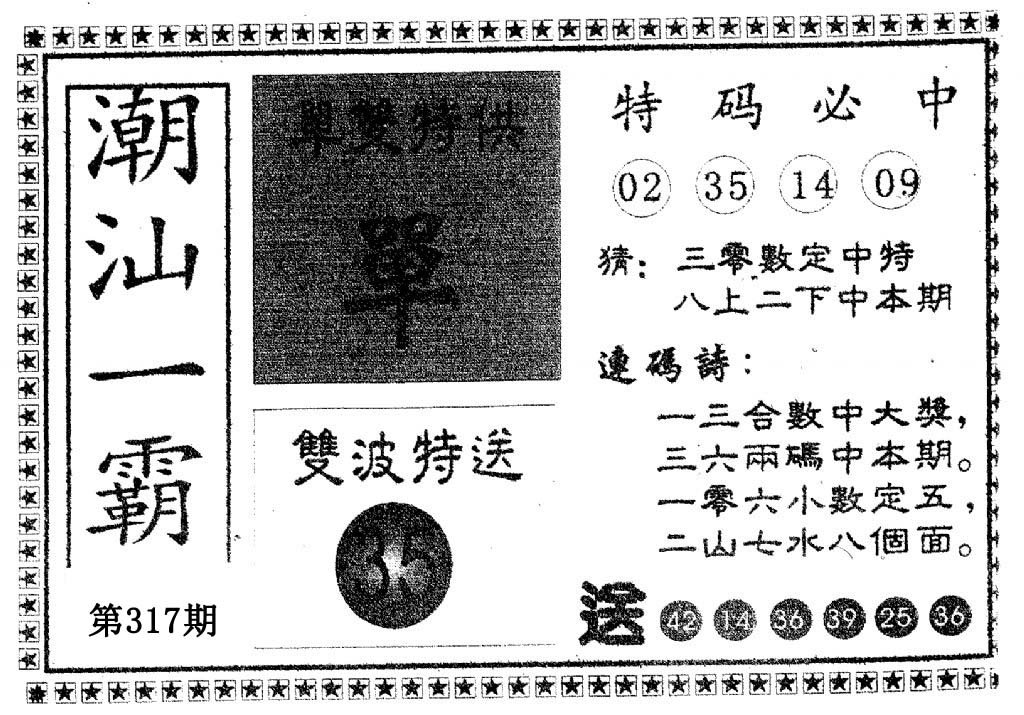 潮汕一霸
第317期
單雙特供
單
雙波特送
35
特码必中
02 35 14 09
猜：三零數定中特
八上二下中本期
連碼詩：
一三合數中大獎，
三六兩碼中本期。
一零六小數定五，
二山七水八個面。
送 42 14 36 39 25 36